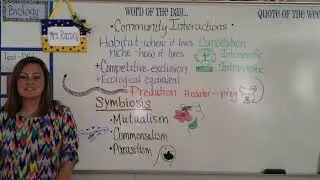 Biology
Mrs.
WORD OF THE DAY...
QUOTE OF THE WEEK
• Community Interactions •
Habitat - where it lives
Competition
niche - how it lives
+ Competitive exclusion
+ Ecological equivalent
Predation
Predator - prey
Symbiosis
• Mutualism
• Commensalism
• Parasitism